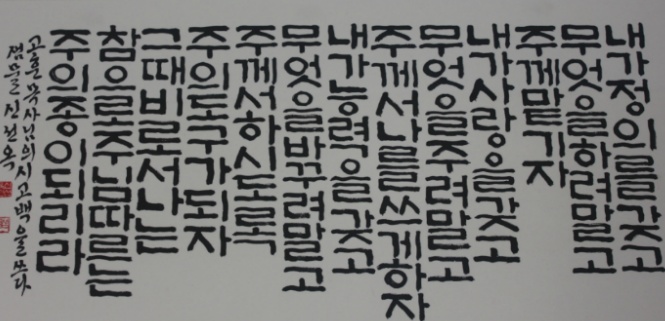 내가정의를갖고
무엇을하려말고
주께맡기자
내가사랑을갖고
무엇을주려말고
주께서나를쓰게하자
내가능력을갖고
무엇을바꾸려말고
주께서하시도록
주의도구가되자
그때비로서나는
참으로주님따르는
주의종이되리라
목사님의 시 고백을 쓰다